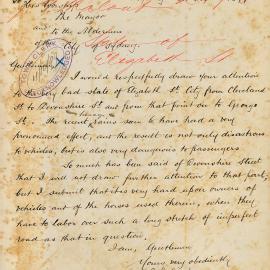 His Worship
The Mayor
and to the Aldermen
of the City of Sydney
Elizabeth St
Gentlemen
I would respectfully draw your attention
to the very bad state of Elizabeth St. City from Cleveland
St to Devonshire St. and from that point on to George
St. The recent heavy rains seem to have had a very
pronounced effect, and the result is not only disastrous
to vehicles, but is also very dangerous to passengers.
So much has been said of Devonshire Street
that I will not draw further attention to that part;
but I submit that it is very hard upon owners of
vehicles and of the horses used therein, when they
have to labor over such a long stretch of imperfect
road as that in question.
I am, Gentlemen
Yours very obediently